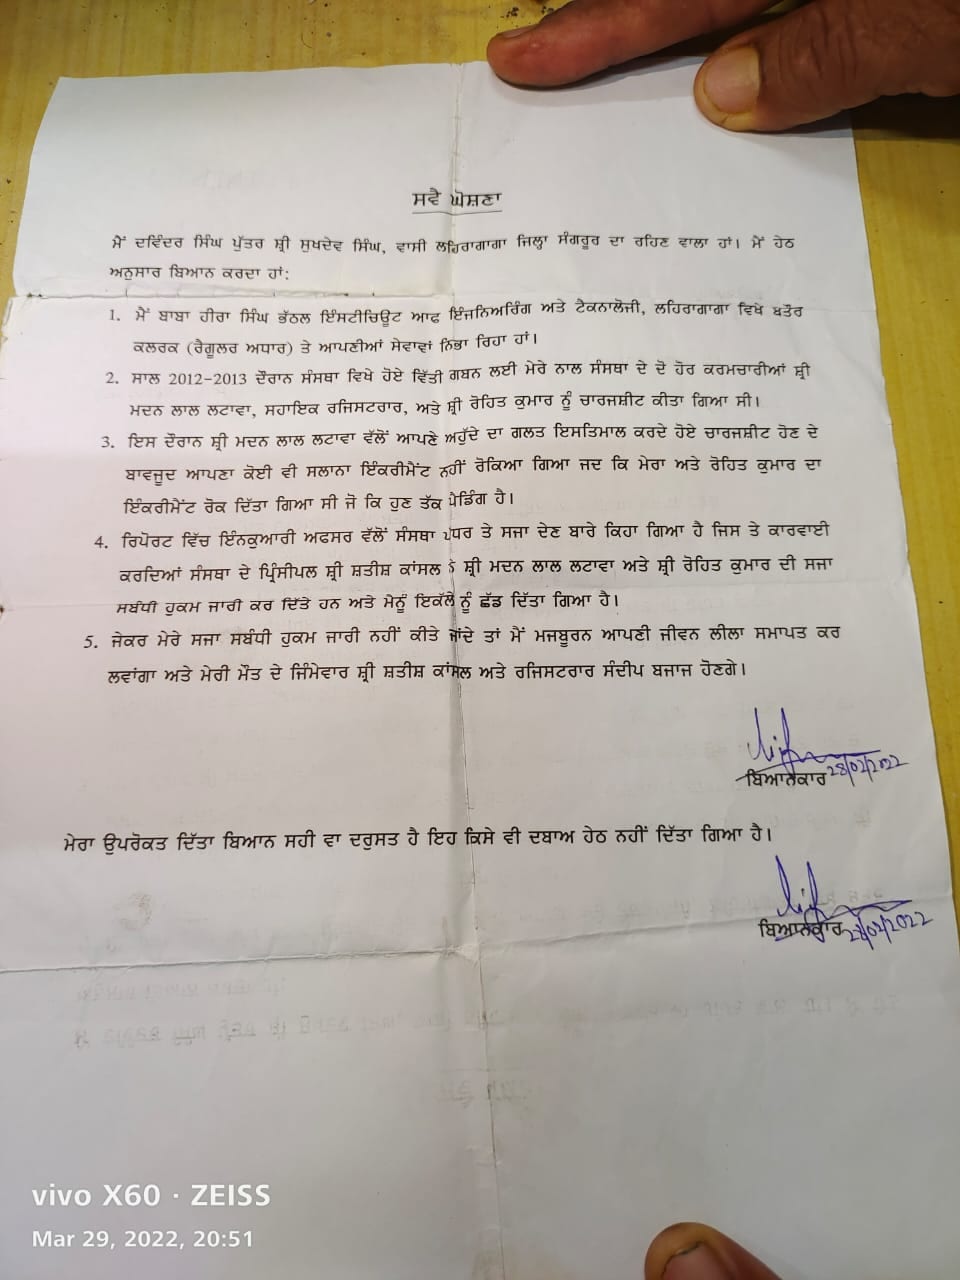 ਸਵੈ ਘੋਸ਼ਣਾ
ਮੈਂ ਦਵਿੰਦਰ ਸਿੰਘ ਪੁੱਤਰ ਸ਼੍ਰੀ ਸੁਖਦੇਵ ਸਿੰਘ, ਵਾਸੀ ਲਹਿਰਾਗਾਗਾ ਜਿਲ੍ਹਾ ਸੰਗਰੂਰ ਦਾ ਰਹਿਣ ਵਾਲਾ ਹਾਂ। ਮੈਂ ਹੇਠ
ਅਨੁਸਾਰ ਬਿਆਨ ਕਰਦਾ ਹਾਂ:
1. ਮੈਂ ਬਾਬਾ ਹੀਰਾ ਸਿੰਘ ਭੱਠਲ ਇੰਸਟੀਚਿਊਟ ਆਫ ਇੰਜਨਿਅਰਿੰਗ ਅਤੇ ਟੈਕਨਾਲੋਜੀ, ਲਹਿਰਾਗਾਗਾ ਵਿਖੇ ਬਤੌਰ
ਕਲਰਕ (ਰੈਗੂਲਰ ਅਧਾਰ) ਤੇ ਆਪਣੀਆਂ ਸੇਵਾਵਾਂ ਨਿਭਾ ਰਿਹਾ ਹਾਂ।
2. ਸਾਲ 2012-2013 ਦੌਰਾਨ ਸੰਸਥਾ ਵਿਖੇ ਹੋਏ ਵਿੱਤੀ ਗਬਨ ਲਈ ਮੇਰੇ ਨਾਲ ਸੰਸਥਾ ਦੇ ਦੋ ਹੋਰ ਕਰਮਚਾਰੀਆਂ ਸ਼੍ਰੀ
ਮਦਨ ਲਾਲ ਲਟਾਵਾ, ਸਹਾਇਕ ਰਜਿਸਟਰਾਰ, ਅਤੇ ਸ਼੍ਰੀ ਰੋਹਿਤ ਕੁਮਾਰ ਨੂੰ ਚਾਰਜਸ਼ੀਟ ਕੀਤਾ ਗਿਆ ਸੀ।
3. ਇਸ ਦੌਰਾਨ ਸ਼੍ਰੀ ਮਦਨ ਲਾਲ ਲਟਾਵਾ ਵੱਲੋਂ ਆਪਣੇ ਅਹੁੱਦੇ ਦਾ ਗਲਤ ਇਸਤਿਮਾਲ ਕਰਦੇ ਹੋਏ ਚਾਰਜਸ਼ੀਟ ਹੋਣ ਦੇ
ਬਾਵਜੂਦ ਆਪਣਾ ਕੋਈ ਵੀ ਸਲਾਨਾ ਇੰਕਰੀਮੈਂਟ ਨਹੀਂ ਰੋਕਿਆ ਗਿਆ ਜਦ ਕਿ ਮੇਰਾ ਅਤੇ ਰੋਹਿਤ ਕੁਮਾਰ ਦਾ
ਇੰਕਰੀਮੈਂਟ ਰੋਕ ਦਿੱਤਾ ਗਿਆ ਸੀ ਜੋ ਕਿ ਹੁਣ ਤੱਕ ਪੈਡਿੰਗ ਹੈ।
4. ਰਿਪੋਰਟ ਵਿੱਚ ਇੰਨਕੁਆਰੀ ਅਫਸਰ ਵੱਲੋਂ ਸੰਸਥਾ ਪੱਧਰ ਤੇ ਸਜਾ ਦੇਣ ਬਾਰੇ ਕਿਹਾ ਗਿਆ ਹੈ ਜਿਸ ਤੇ ਕਾਰਵਾਈ
ਕਰਦਿਆਂ ਸੰਸਥਾ ਦੇ ਪ੍ਰਿੰਸੀਪਲ ਸ਼੍ਰੀ ਸ਼ਤੀਸ਼ ਕਾਂਸਲ ਨੇ ਸ਼੍ਰੀ ਮਦਨ ਲਾਲ ਲਟਾਵਾ ਅਤੇ ਸ਼੍ਰੀ ਰੋਹਿਤ ਕੁਮਾਰ ਦੀ ਸਜਾ
ਸਬੰਧੀ ਹੁਕਮ ਜਾਰੀ ਕਰ ਦਿੱਤੇ ਹਨ ਅਤੇ ਮੈਨੂੰ ਇਕੱਲੇ ਨੂੰ ਛੱਡ ਦਿੱਤਾ ਗਿਆ ਹੈ।
5. ਜੇਕਰ ਮੇਰੇ ਸਜਾ ਸਬੰਧੀ ਹੁਕਮ ਜਾਰੀ ਨਹੀਂ ਕੀਤੇ ਜਾਂਦੇ ਤਾਂ ਮੈਂ ਮਜਬੂਰਨ ਆਪਣੀ ਜੀਵਨ ਲੀਲਾ ਸਮਾਪਤ ਕਰ
ਲਵਾਂਗਾ ਅਤੇ ਮੇਰੀ ਮੌਤ ਦੇ ਜਿੰਮੇਵਾਰ ਸ਼੍ਰੀ ਸ਼ਤੀਸ਼ ਕਾਂਸਲ ਅਤੇ ਰਜਿਸਟਰਾਰ ਸੰਦੀਪ ਬਜਾਜ ਹੋਣਗੇ।
ਬਿਆਨਕਾਰ 28/02/2022
ਮੇਰਾ ਉਪਰੋਕਤ ਦਿੱਤਾ ਬਿਆਨ ਸਹੀ ਵਾ ਦਰੁਸਤ ਹੈ ਇਹ ਕਿਸੇ ਵੀ ਦਬਾਅ ਹੇਠ ਨਹੀਂ ਦਿੱਤਾ ਗਿਆ ਹੈ।
ਬਿਆਨਕਾਰ 28/02/2022
vivo X60 · ZEISS
Mar 29, 2022, 20:51